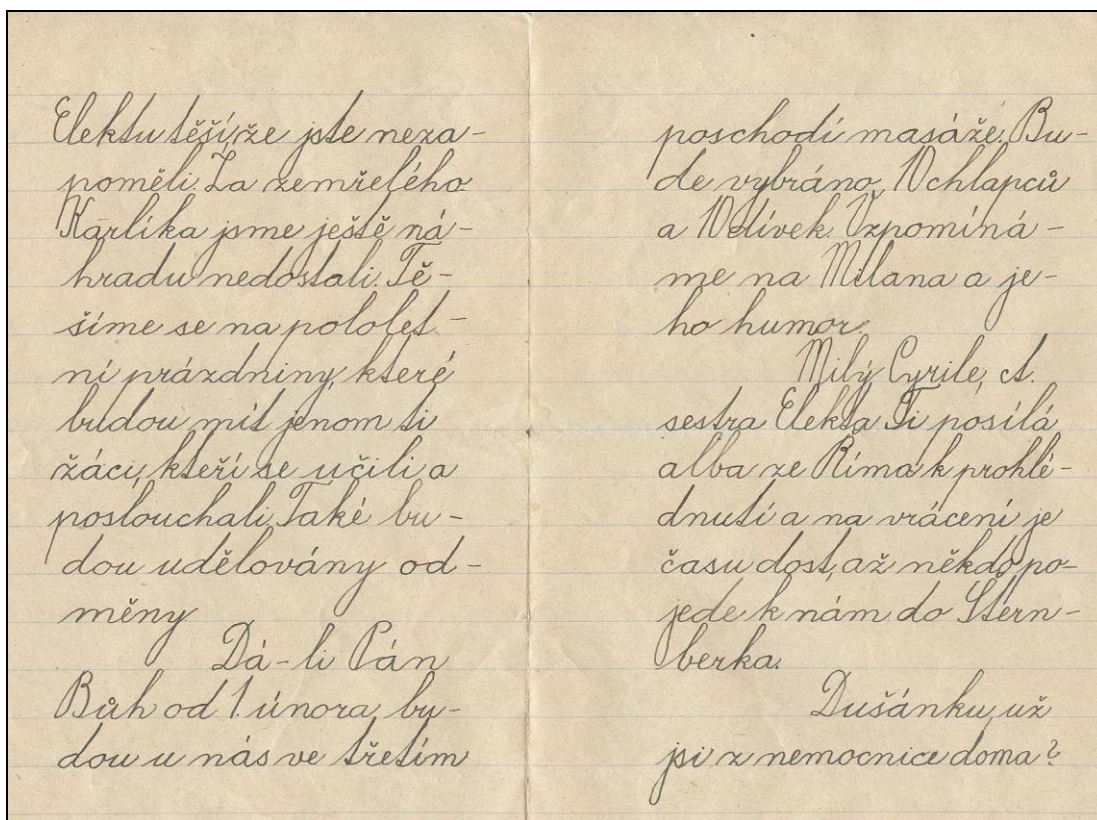 Elektu těší, že jste neza-
poměli. Za zemřelého
Karlíka jsme ještě ná-
hradu nedostali. Tě-
šíme se na pololet-
ní prázdniny, které
budou mít jenom ti
žáci, kteří se učili a
poslouchali. Také bu-
dou udělovány od-
měny
Dá-li Pán
Bůh od 1. února, bu-
dou u nás ve třetím
poschodí masáže. Bu-
de vybráno 10 chlapců
a 10 dívek. Vzpomíná-
me na Milana a je-
ho humor.
Milý Cyrile, ct.
sestra Elekta Ti posílá
alba ze Říma k prohlé-
dnutí a na vrácení je
času dost, až někdo po-
jede k nám do Štern-
berka.
Dušánku, už
jsi z nemocnice doma?